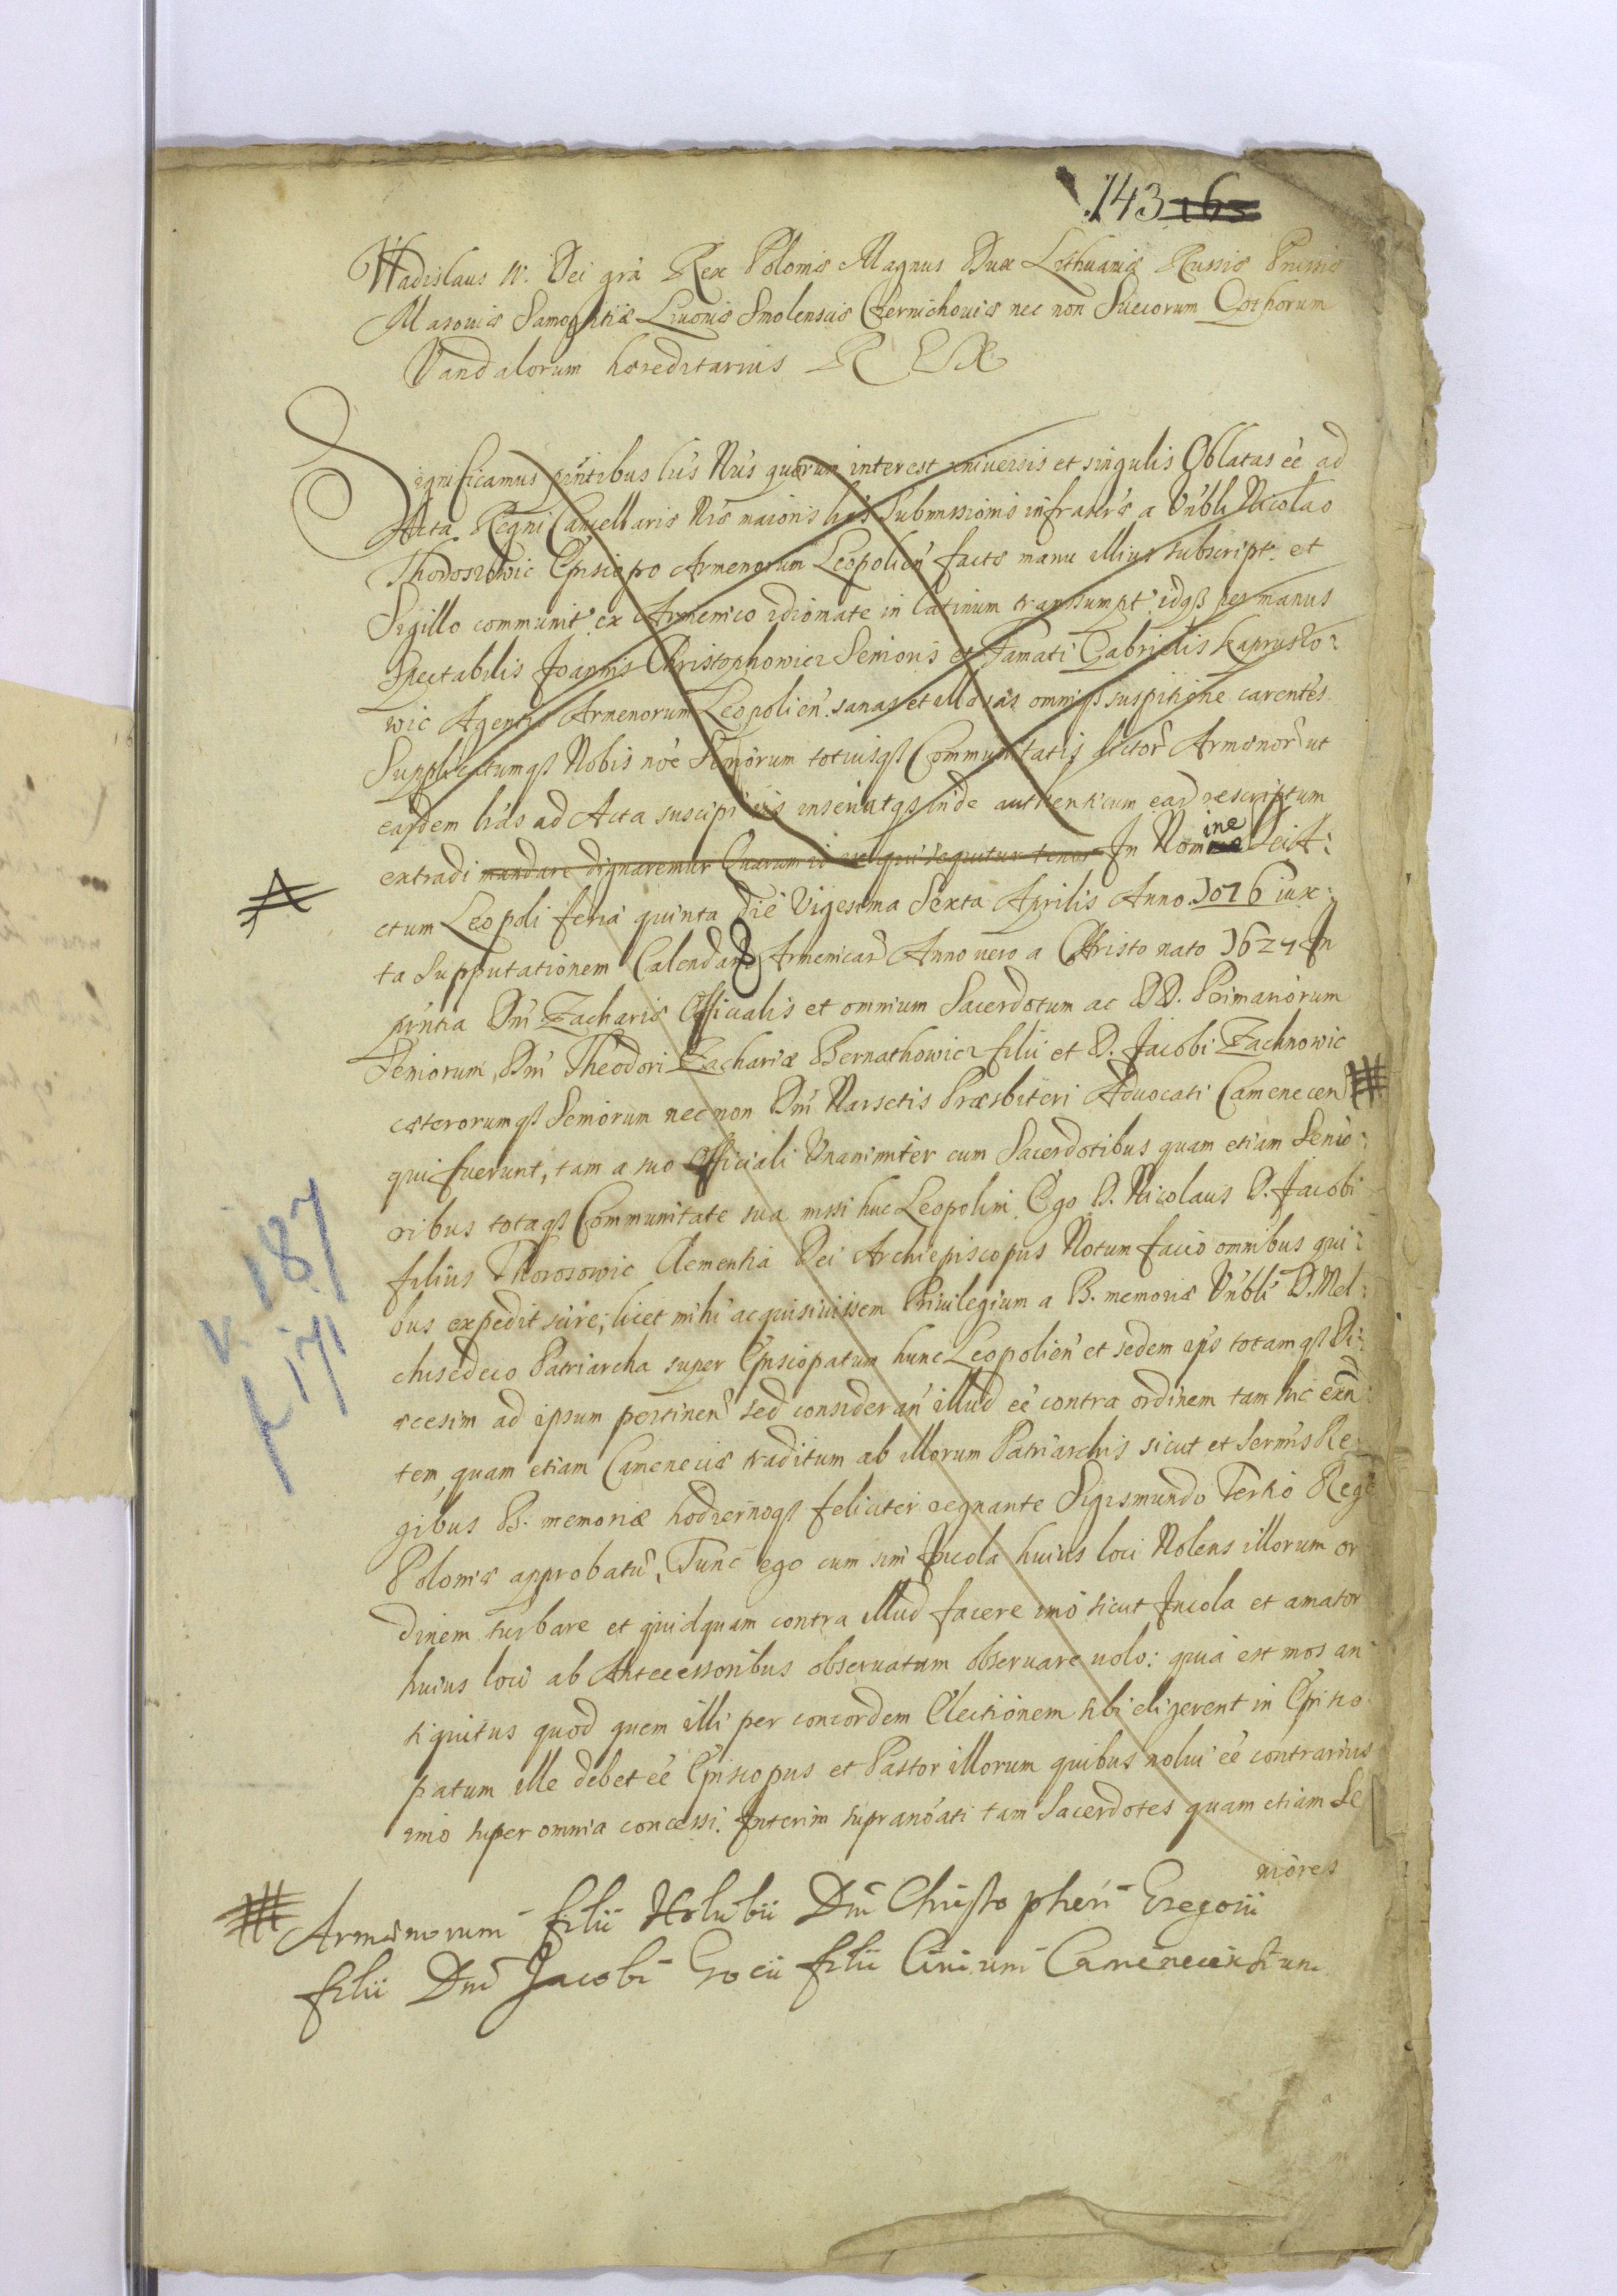 143 163
Wladislaus IV. Dei grā Rex Poloniæ Magnus Dux Lithuaniæ Russiæ Prussiæ
Masouiæ Samogitiæ Liuoniæ Smolensciæ Czernichouiæ nec non Suecorum Gothorum
Vandalorum hæreditarius REX
Significamus pñtibus lr̃is Nr̃is quorum interest vniuersis et singulis Oblatas eẽ ad
Acta Regni Cancellariæ Nræ maioris lrãs Submissionis infrascr̃ a Vñbli Nicolao
Thorosowic Episcopo Armenorum Leopolieñ factæ manu illius subscript. et
Sigillo communit. ex Armenico idiomate in latinum transsumpt. idqꝫ per manus
Spectabilis Joannis Christophowicz Senioris et Famati Gabrielis Kaprusso:
wic Agentis Armenorum Leopolieñ. sanas et illæsas omniqꝫ suspitione carentes
Supplicatumqꝫ Nobis noẽ Seniorum totiusqꝫ Communitatis dictor Armenor ut
easdem lrãs ad Acta suscipi iis inseri atqꝫ inde authenticum eard rescriptum
extradi mandare dignaremur Quarum is est qui sequitur tenor In Nomine Dei A:
ctum Leopoli feria quinta die Vigesima Sexta Aprilis Anno 1076 iux:
ta Supputationem Calendar Armenicar Anno uero a Christo nato 1627 In
pñtia Dñi Zachariæ Officialis et omnium Sacerdotum ac DD. Primariorum
Seniorum, Dñi Theodori Zachariæ Bernathowicz filii et D. Jacobi Zachnowic
cæterorumqꝫ Seniorum nec non Dñi Narsetis Præsbiteri Aduocati Camenecen
qui fuerunt, tam a suo Officiali Vnanimiter cum Sacerdotibus quam etiam Senio:
ribus totaqꝫ Communitate sua missi huc Leopolim. Ego D. Nicolaus D. Jacobi
filius Thorosowic Clementia Dei Archiepiscopus Notum facio omnibus qui:
bus expedit scire; licet mihi acquisiuissem Priuilegium a B. memoriæ Vñbli D. Mel:
chisedeco Patriarcha super Episcopatum hunc Leopolieñ et sedem eps totamqꝫ Di:
æcesim ad ipsum pertinen sed considerañ illud eẽ contra ordinem tam hic exñ:
tem, quam etiam Cameneciæ traditum ab illorum Patriarchis sicut et Sermis Re:
gibus B. memoriæ hodiernoqꝫ feliciter regnante Sigismundo Tertio Rege
Poloniæ approbatũ, Tunc ego cum sim Incola huius loci Nolens illorum or
dinem turbare et quidquam contra illud facere imo sicut Incola et amator
huius loci ab Antecessoribus obseruatum obseruare uolo: quia est mos an
tiquitus quod quem illi per concordem Electionem sibi eligerent in Episco
patum ille debet eẽ Episcopus et Pastor illorum quibus nolui eẽ contrarius
imo super omnia concessi. Interim supranõati tam Sacerdotes quam etiam Se
niores
v. 187
f 171
Armenorum filii Holubii Dñi Christopheri Gregorii
filii Dñi Jacobi filii Ciuium Camenecensium